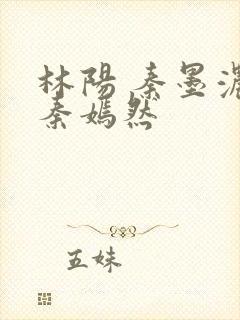 林陽 秦墨濃
秦嫣然
五妹